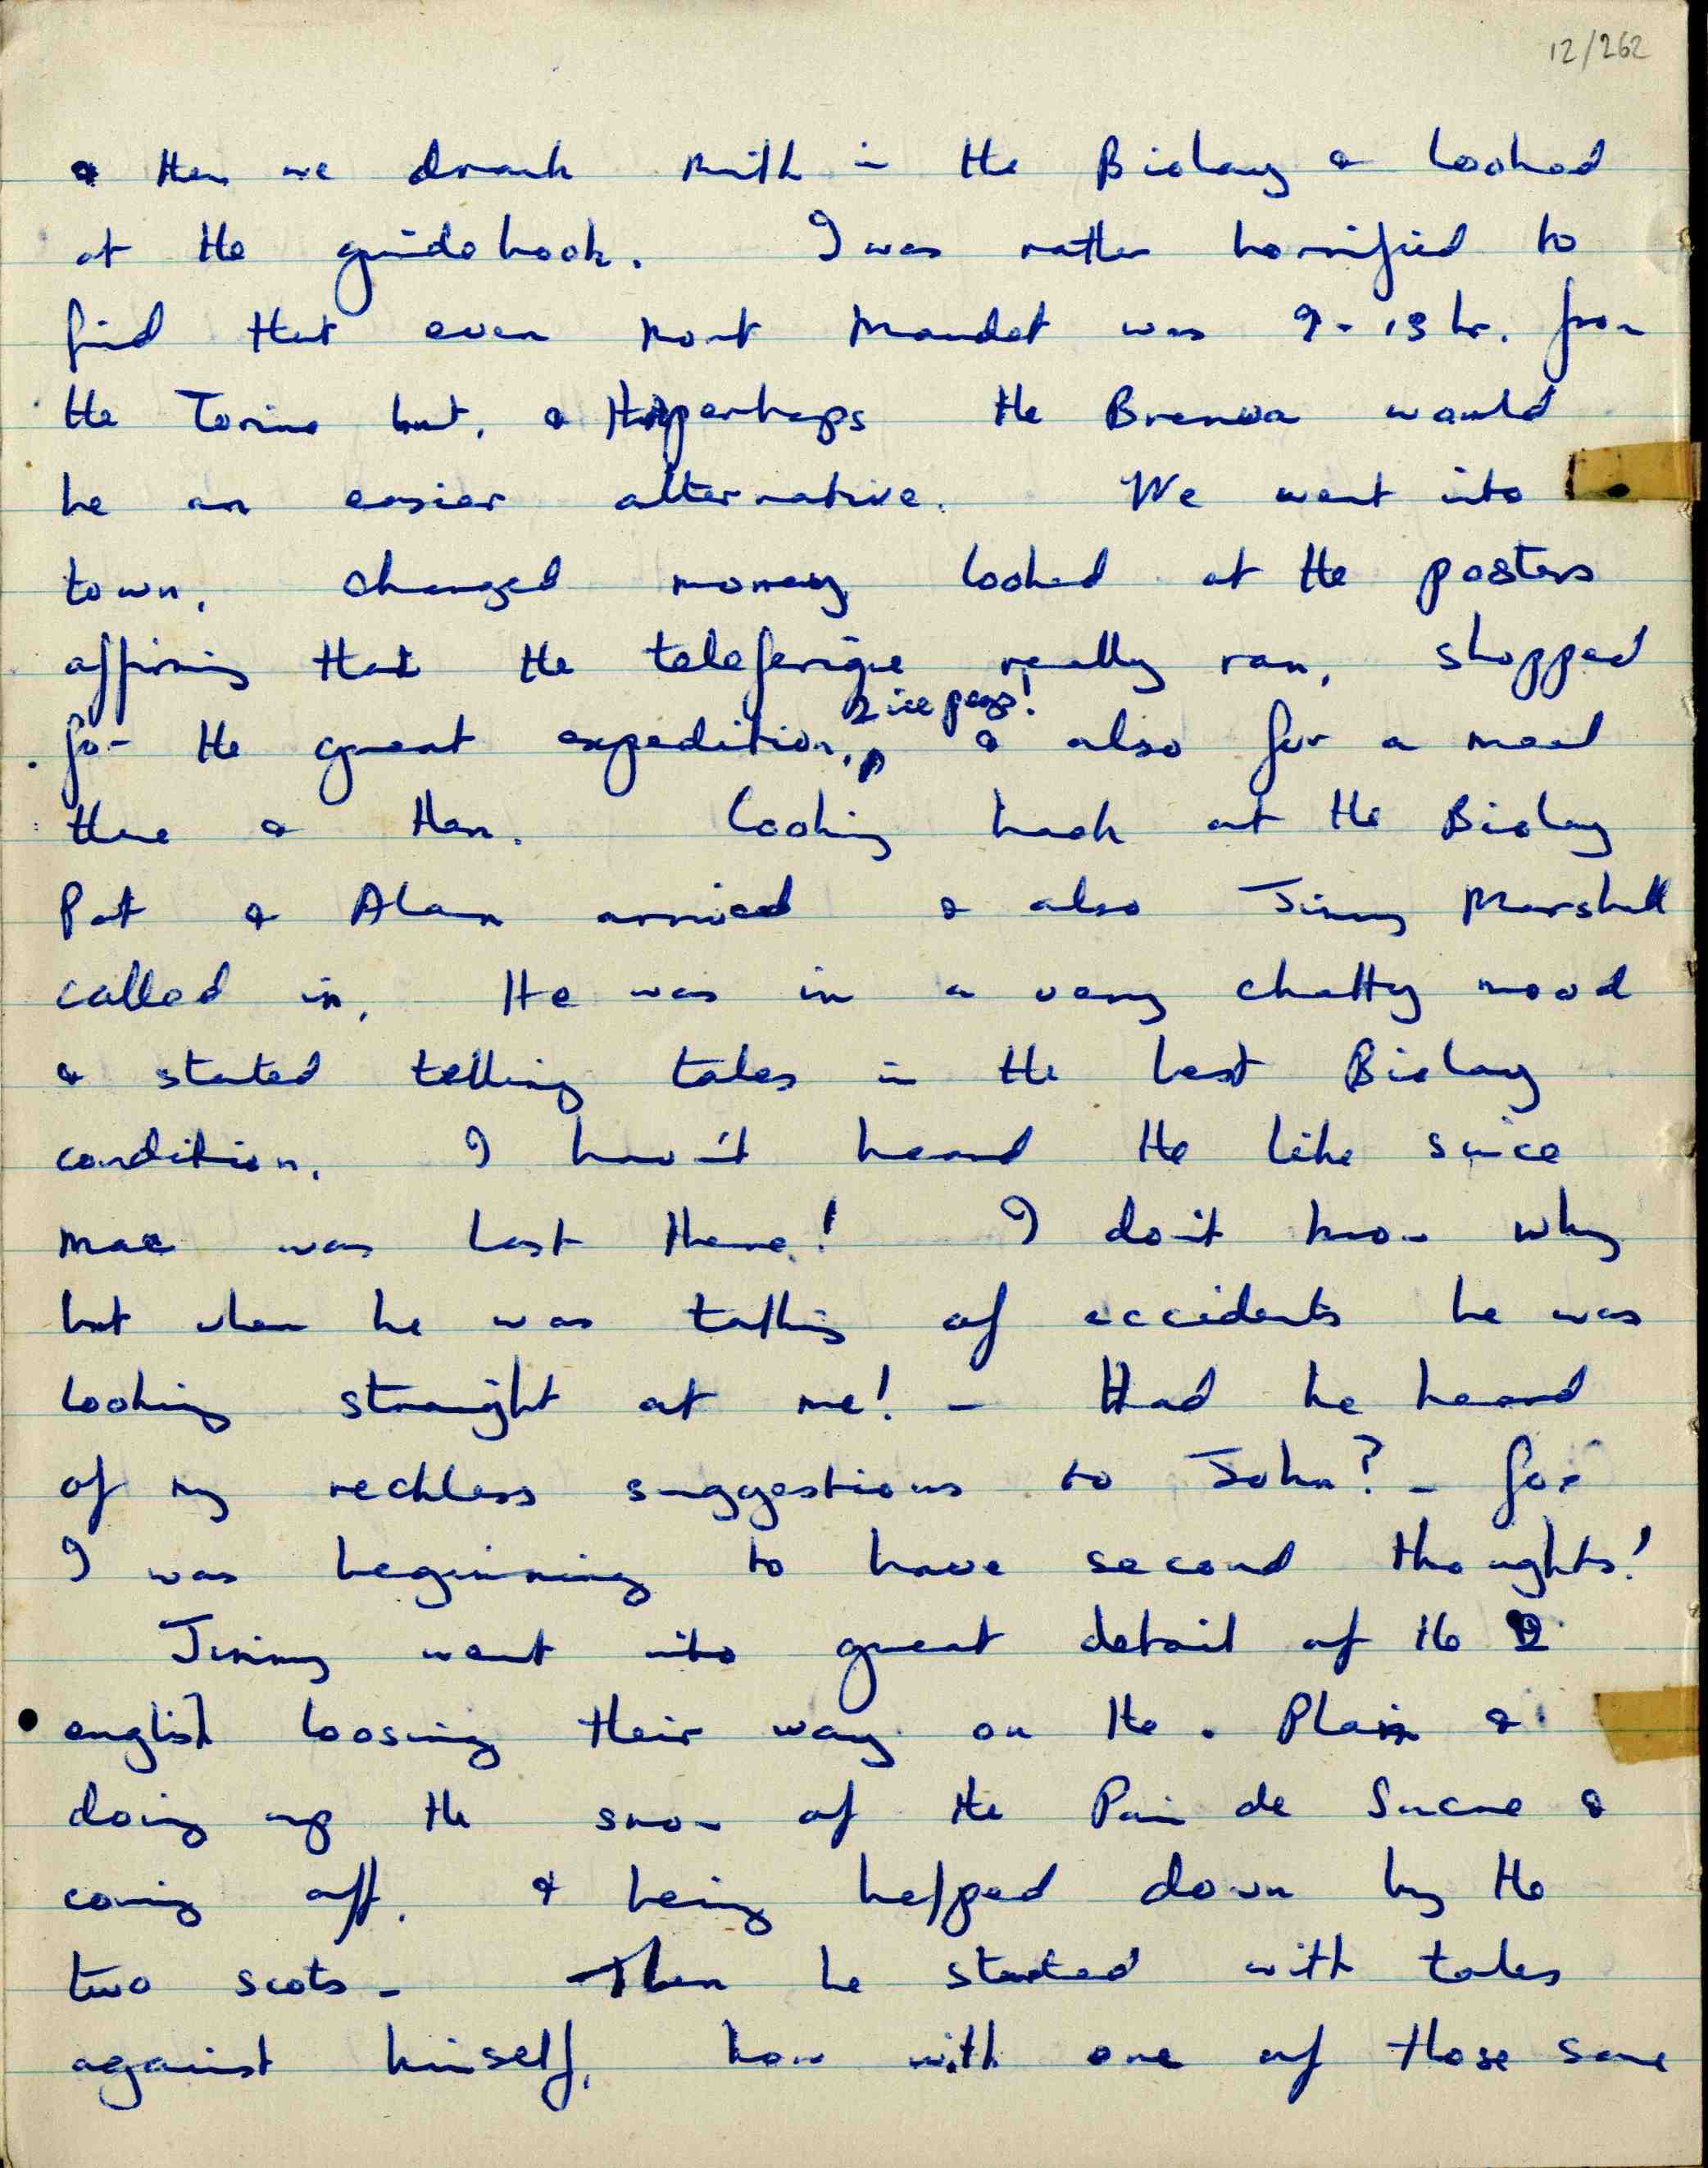 12/262
& then we drank milk in the Biolay & looked
at the guidebook. I was rather horrified to
find that even Mont Maudit was 9-13 hr. from
the Torino hut, & perhaps the Brenva would
be an easier alternative. We went into
town, changed money looked at the posters
affirming that the teleferique really ran, shopped
2 ice pegs!
for the great expedition, & also for a meal
there & then. Cooking back at the Biolay
Pat & Alan arrived & also Jimmy Marshall
called in. He was in a very chatty mood
& started telling tales in the best Biolay
condition. I havn't heard the like since
Mac was last there! I don't know why
but when he was talking of accidents he was
looking straight at me! - Had he heard
of my reckless suggestions to John? - for
I was beginning to have second thoughts!
Jimmy went into great detail of the 2
english loosing their way on the Plan &
doing up the snow of the Pain de Sucre &
coming off. & being helped down by the
two scots - Then he started with tales
against himself, how with one of those same